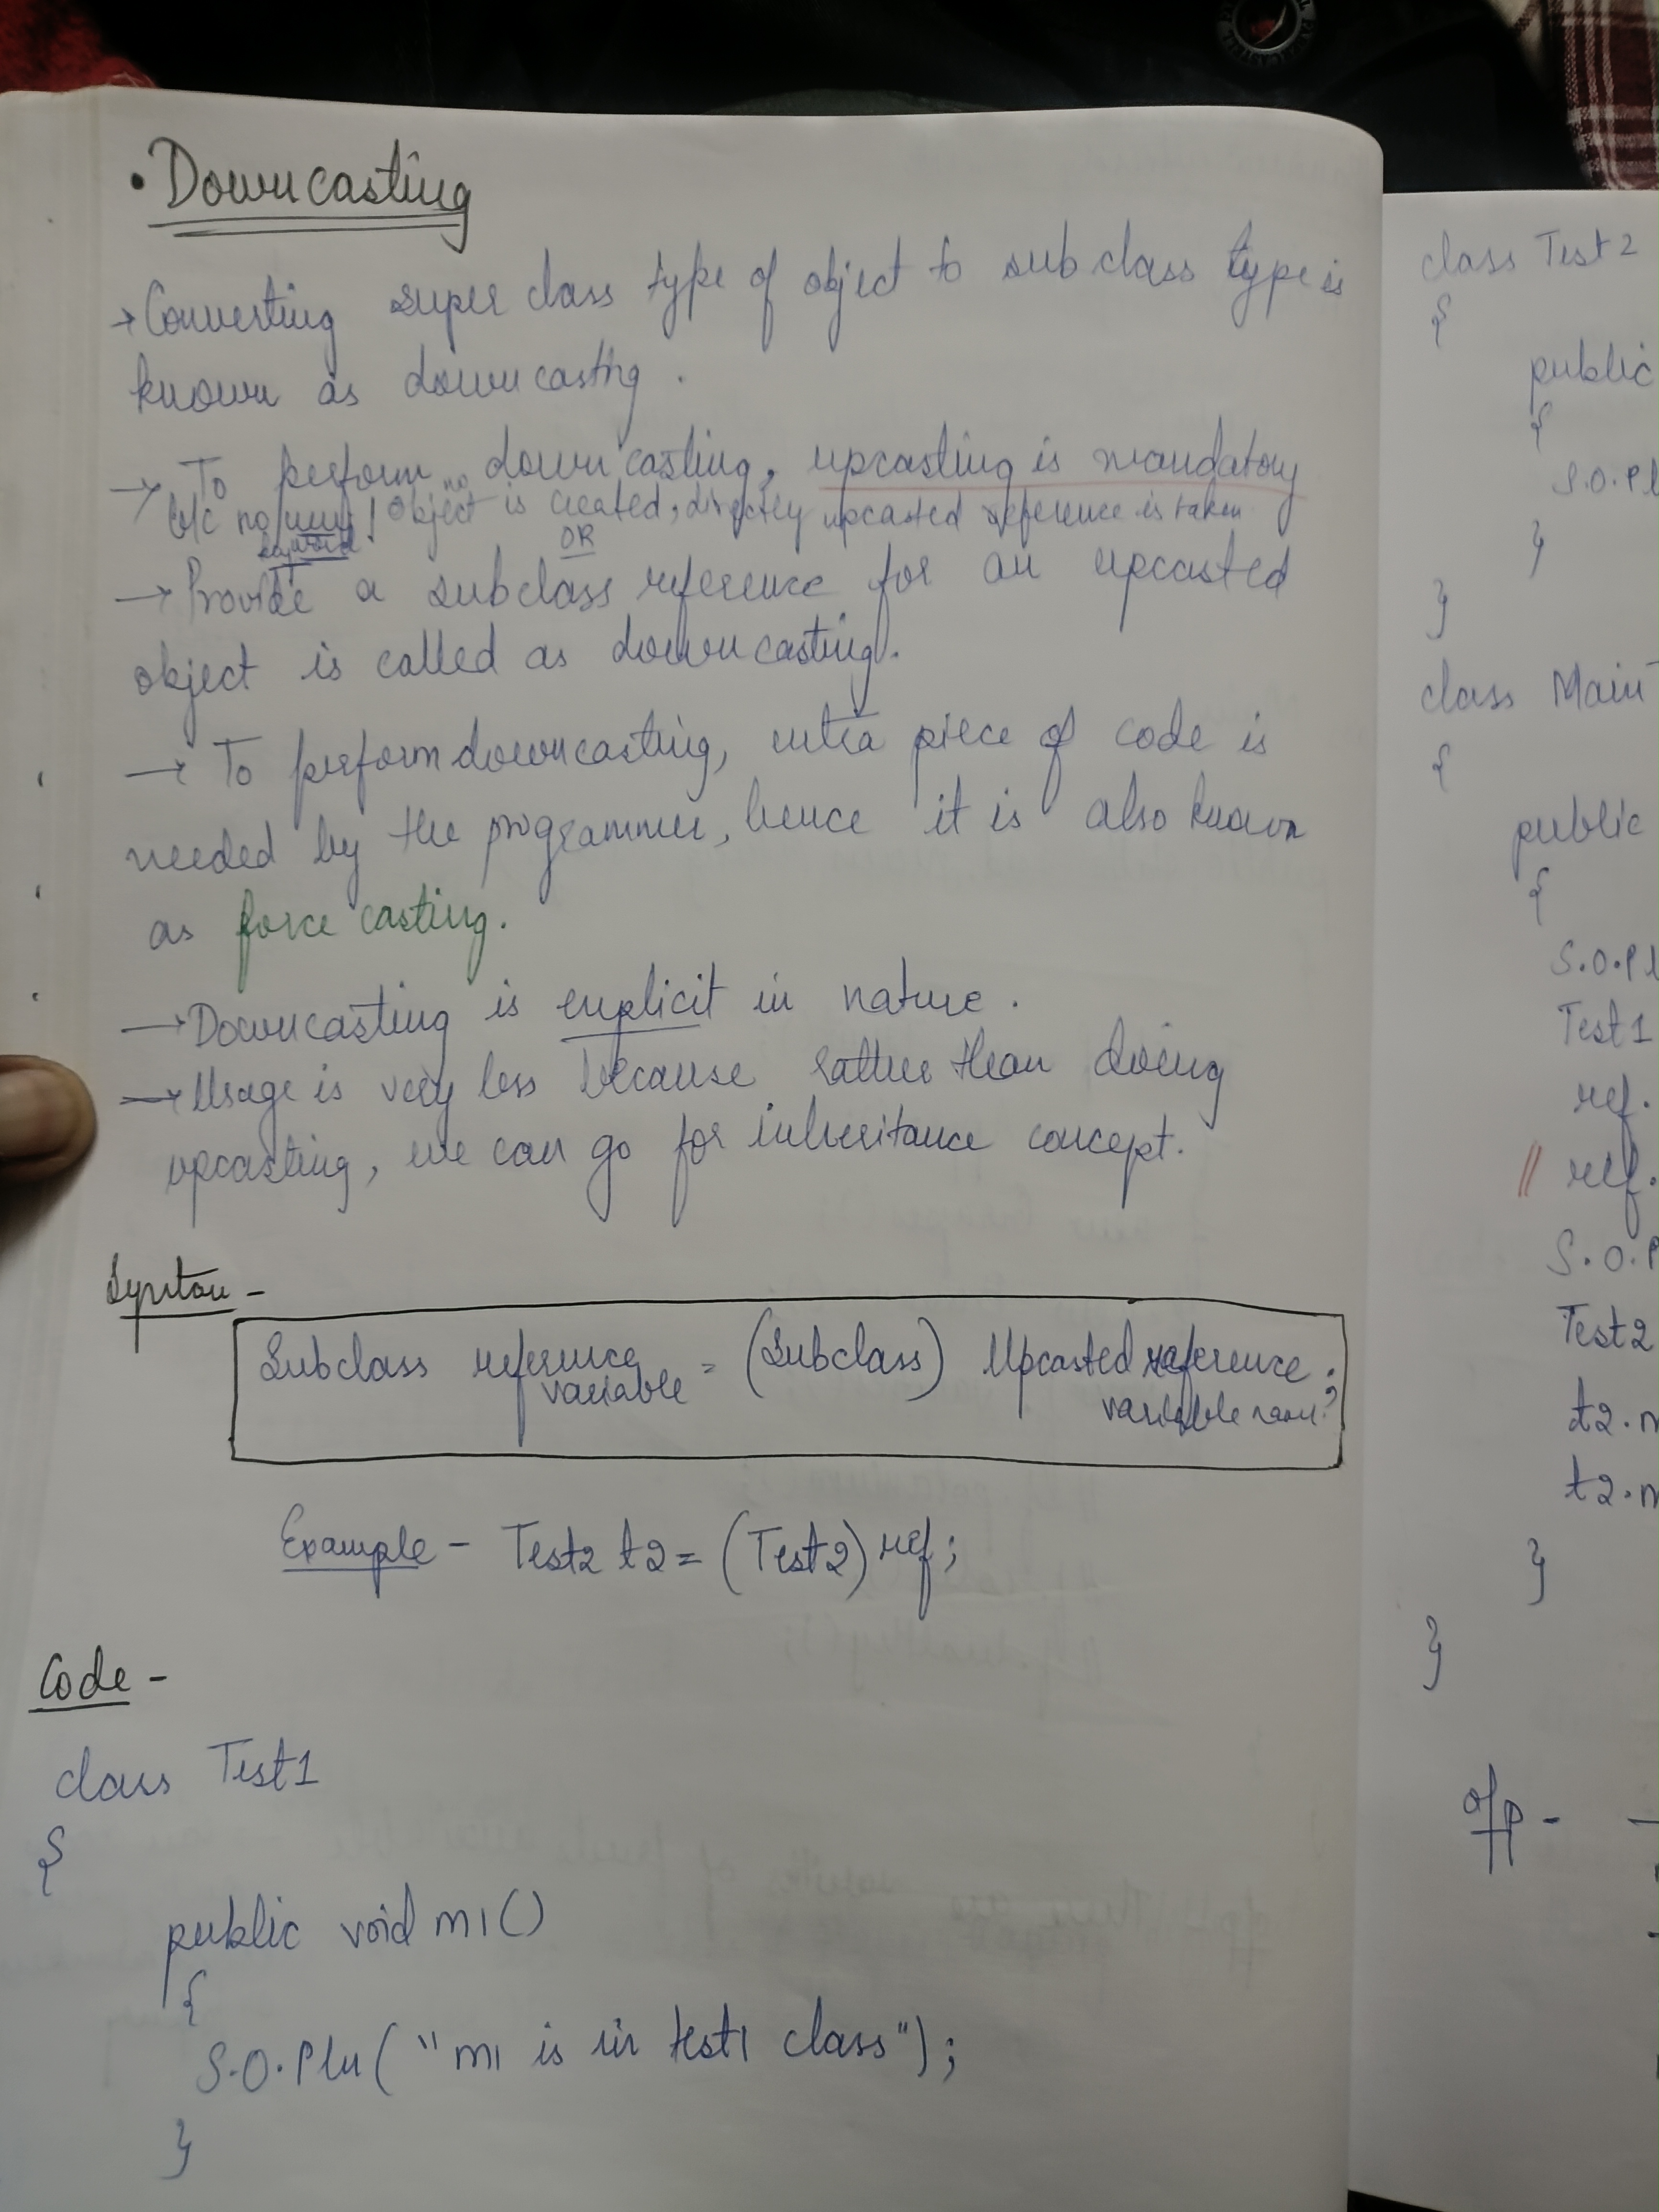 • Downcasting
→ Converting super class type of object to sub class type is
known as downcasting.
→ To perform downcasting, upcasting is mandatory
b/c no new keyword / no object is created, directly upcasted reference is taken
OR
→ Provide a subclass reference for an upcasted
object is called as downcasting.
→ To perform downcasting, extra piece of code is
needed by the programmer, hence it is also known
as force casting.
→ Downcasting is explicit in nature.
→ Usage is very less because rather than doing
upcasting, we can go for inheritance concept.
Syntax -
Subclass reference variable = (Subclass) Upcasted reference variable name;
Example - Test2 t2 = (Test2) ref;
Code -
class Test1
{
public void m1()
{
S.O.Pln("m1 is in test1 class");
}
class Test2
{
public
{
S.O.Pl
}
}
class Main
{
public
{
S.O.Pl
Test1
ref.
// ref.
S.O.P
Test2
t2.m
t2.m
}
}
o/p -